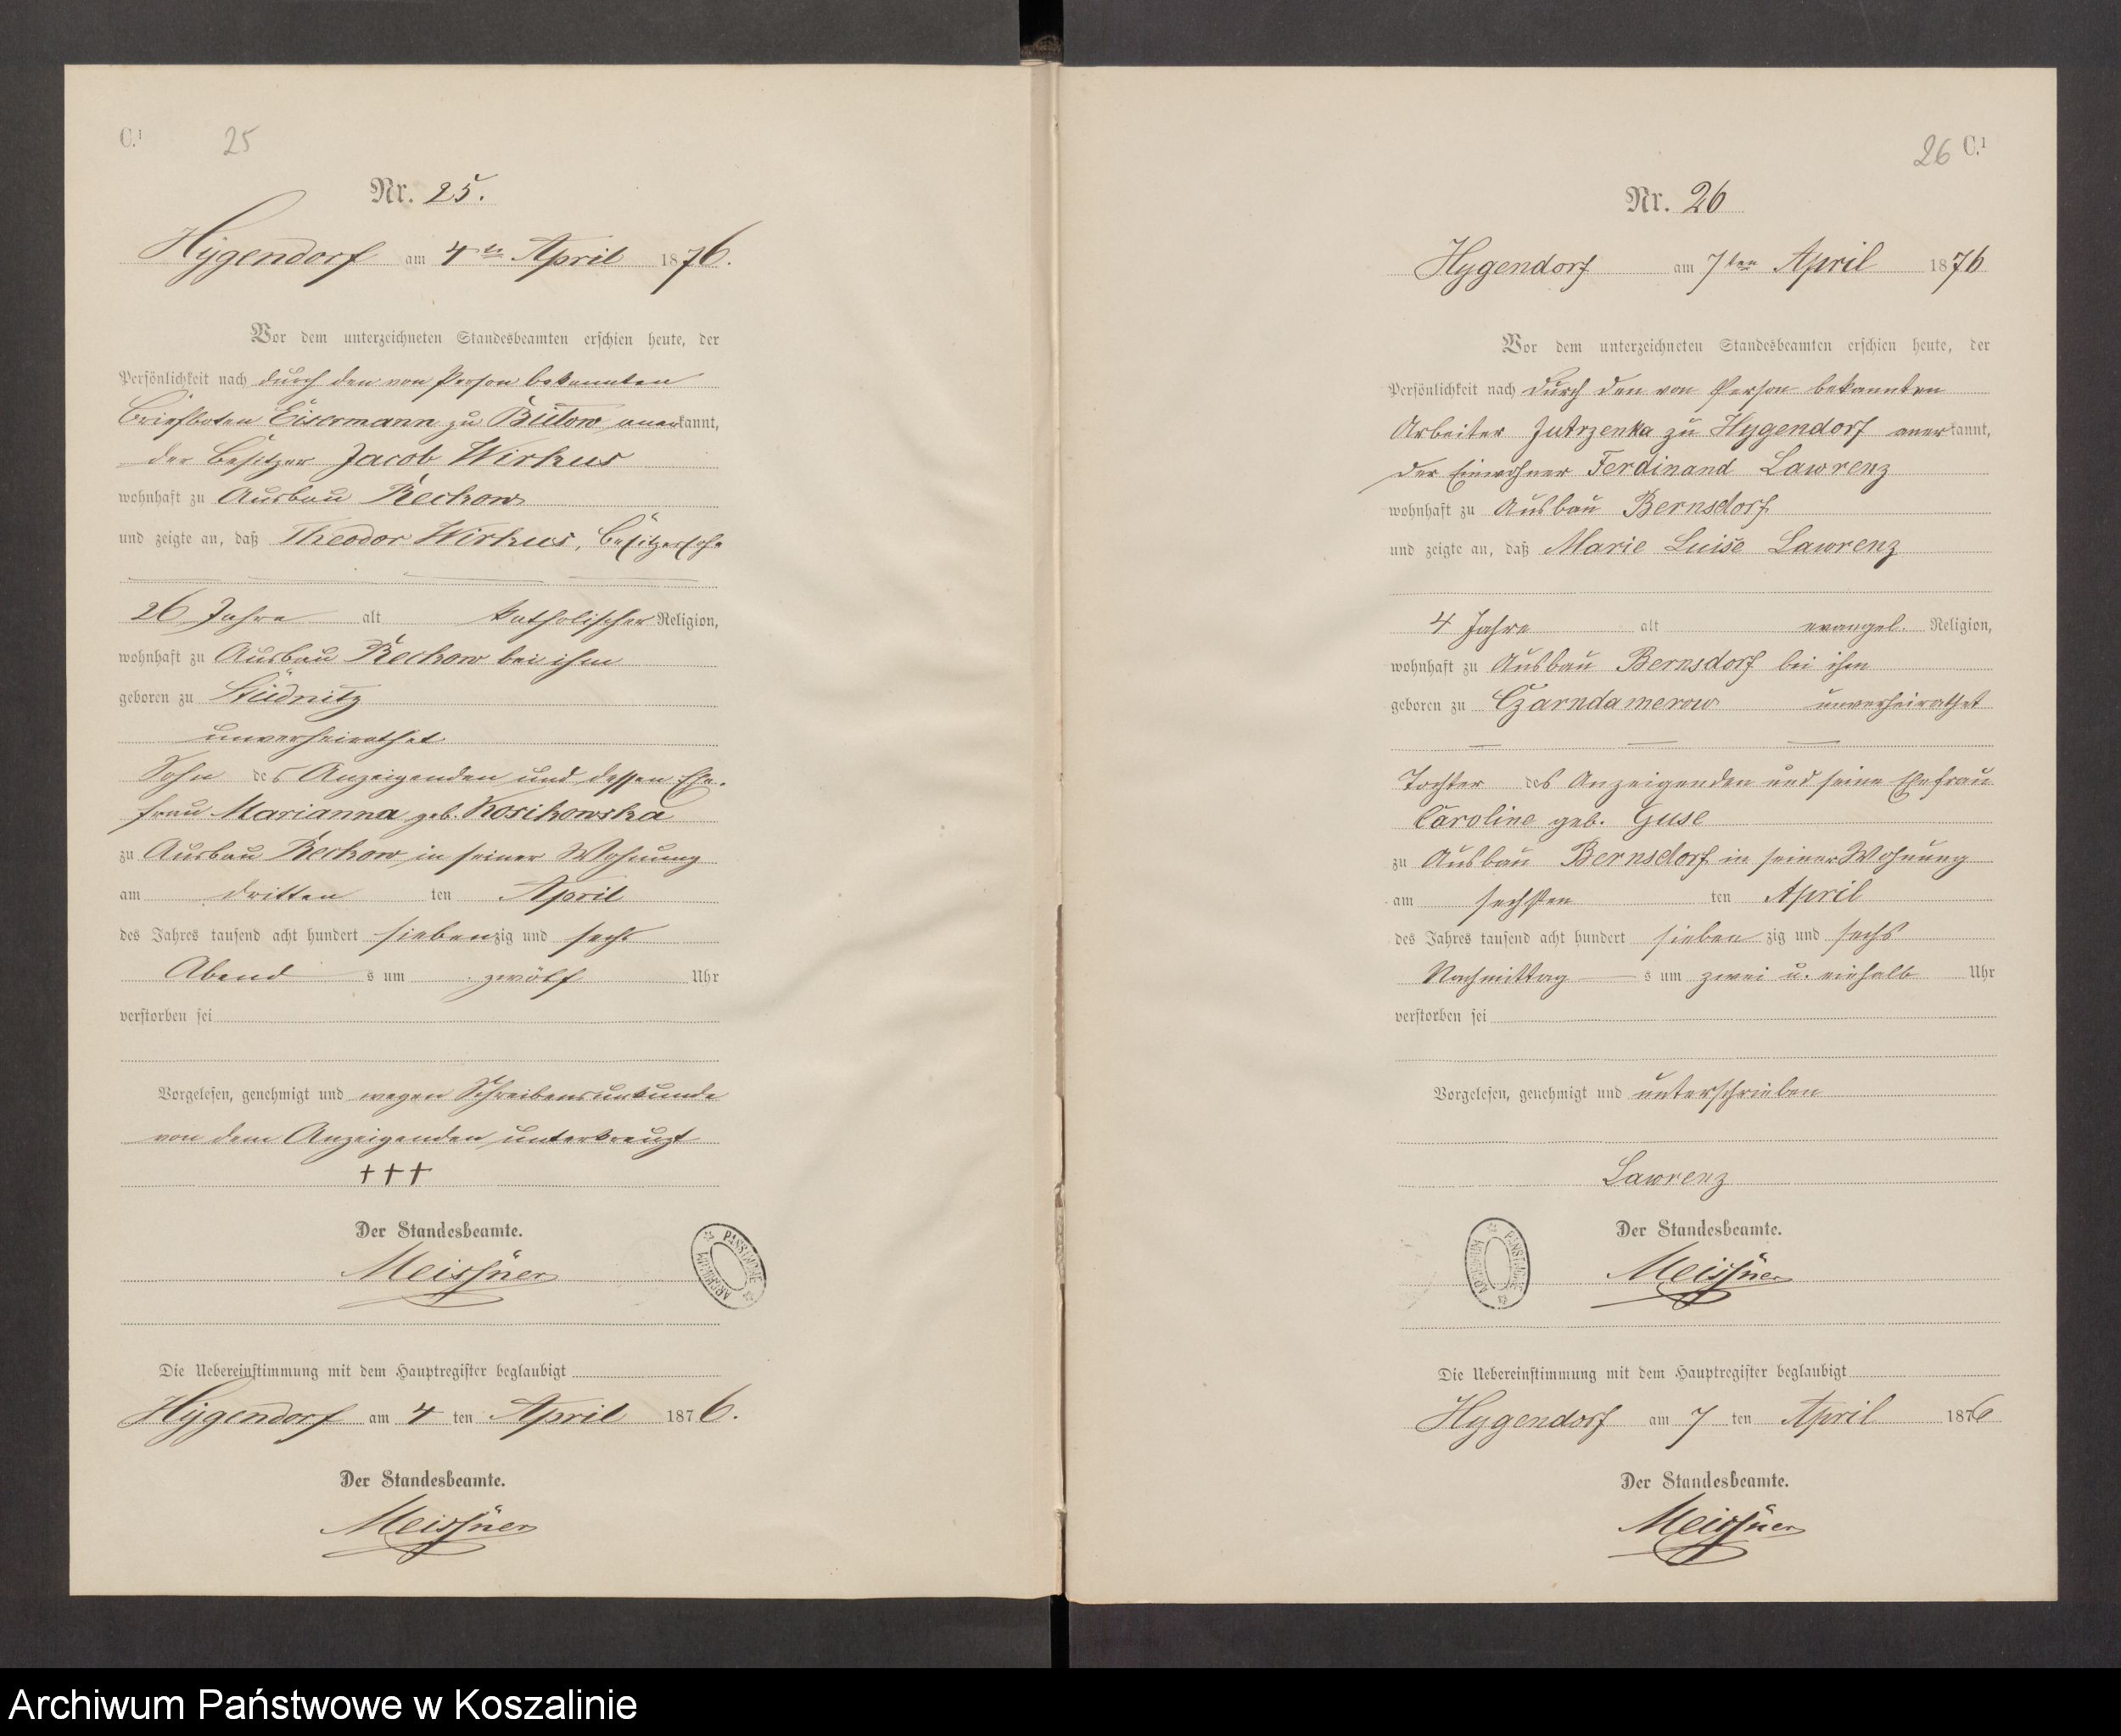 C.¹ 25
Nr. 25.
Hygendorf am 4ten April 1876.
Vor dem unterzeichneten Standesbeamten erschien heute, der
Persönlichkeit nach durch den von Person bekannten
Briefboten Eisermann zu Bütow anerkannt,
der Besitzer Jacob Wirkus
wohnhaft zu Ausbau Reckow
und zeigte an, daß Theodor Wirkus, Besitzersohn
26 Jahre alt katholischer Religion,
wohnhaft zu Ausbau Reckow bei ihm
geboren zu Stüdnitz
unverheirathet
Sohn des Anzeigenden und dessen Ehe-
frau Marianna geb. Kosikowska
zu Ausbau Reckow, in seiner Wohnung
am dritten ten April
des Jahres tausend acht hundert siebenzig und sechs
Abend s um zwölf Uhr
verstorben sei
Vorgelesen, genehmigt und wegen Schreibensunkunde
von dem Anzeigenden unterkreuzt
+++
Der Standesbeamte.
Meissner
ARCHIWUM PAŃSTWOWE
Die Uebereinstimmung mit dem Hauptregister beglaubigt
Hygendorf am 4 ten April 1876.
Der Standesbeamte.
Meissner
26 C.¹
Nr. 26
Hygendorf am 7ten April 1876
Vor dem unterzeichneten Standesbeamten erschien heute, der
Persönlichkeit nach durch den von Person bekannten
Arbeiter Jutrzenka zu Hygendorf anerkannt,
der Einwohner Ferdinand Lawrenz
wohnhaft zu Ausbau Bernsdorf
und zeigte an, daß Marie Luise Lawrenz
4 Jahre alt evangel. Religion,
wohnhaft zu Ausbau Bernsdorf bei ihm
geboren zu Czarndamerow unverheirathet
Tochter des Anzeigenden und seine Ehefrau
Caroline geb. Guse
zu Ausbau Bernsdorf in seiner Wohnung
am sechsten ten April
des Jahres tausend acht hundert sieben zig und sechs
Nachmittag s um zwei u. einhalb Uhr
verstorben sei
Vorgelesen, genehmigt und unterschrieben
Lawrenz
Der Standesbeamte.
Meissner
ARCHIWUM PAŃSTWOWE
Die Uebereinstimmung mit dem Hauptregister beglaubigt
Hygendorf am 7 ten April 1876
Der Standesbeamte.
Meissner
Archiwum Państwowe w Koszalinie